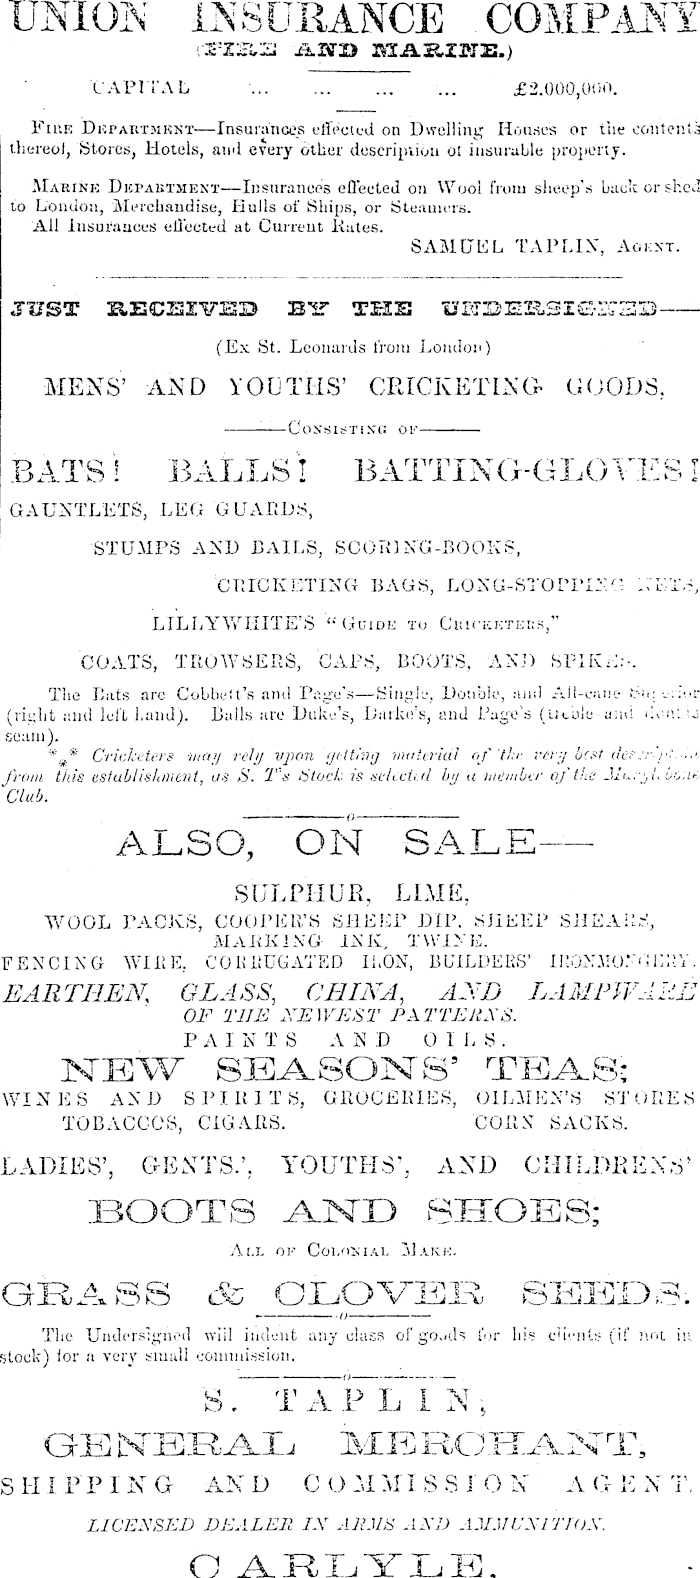 UNION INSURANCE COMPANY
(FIRE AND MARINE.)
CAPITAL ... ... ... ... £2,000,000.
FIRE DEPARTMENT—Insurances effected on Dwelling Houses or the contents
thereof, Stores, Hotels, and every other description of insurable property.
MARINE DEPARTMENT—Insurances effected on Wool from sheep's back or shed
to London, Merchandise, Hulls of Ships, or Steamers.
All Insurances effected at Current Rates.
SAMUEL TAPLIN, AGENT.
JUST RECEIVED BY THE UNDERSIGNED—
(Ex St. Leonards from London)
MENS' AND YOUTHS' CRICKETING GOODS,
——CONSISTING OF——
BATS! BALLS! BATTING-GLOVES!
GAUNTLETS, LEG GUARDS,
STUMPS AND BAILS, SCORING-BOOKS,
CRICKETING BAGS, LONG-STOPPING NETS,
LILLYWHITE'S "GUIDE TO CRICKETERS,"
COATS, TROWSERS, CAPS, BOOTS, AND SPIKES.
The Bats are Cobbett's and Page's—Single, Double, and All-cane Superior
(right and left hand). Balls are Duke's, Darke's, and Page's (treble and double
seam).
*⁎* Cricketers may rely upon getting material of the very best description
from this establishment, as S. T's Stock is selected by a member of the Marylebone
Club.
——o——
ALSO, ON SALE—
SULPHUR, LIME,
WOOL PACKS, COOPER'S SHEEP DIP, SHEEP SHEARS,
MARKING INK, TWINE.
FENCING WIRE, CORRUGATED IRON, BUILDERS' IRONMONGERY.
EARTHEN, GLASS, CHINA, AND LAMPWARE
OF THE NEWEST PATTERNS.
PAINTS AND OILS.
NEW SEASONS' TEAS;
WINES AND SPIRITS, GROCERIES, OILMEN'S STORES
TOBACCOS, CIGARS. CORN SACKS.
LADIES', GENTS.', YOUTHS', AND CHILDRENS'
BOOTS AND SHOES;
ALL OF COLONIAL MAKE.
GRASS & CLOVER SEEDS.
——o——
The Undersigned will indent any class of goods for his clients (if not in
stock) for a very small commission.
——o——
S. TAPLIN,
GENERAL MERCHANT,
SHIPPING AND COMMISSION AGENT.
LICENSED DEALER IN ARMS AND AMMUNITION.
CARLYLE,